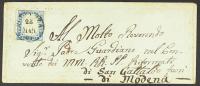 24
MAR
Al Molto Reverendo
Sig.r Padre Guardiano nel Con
vento dei MM. RR. PP. Riformati
di San Cataldo fuori
di Modena